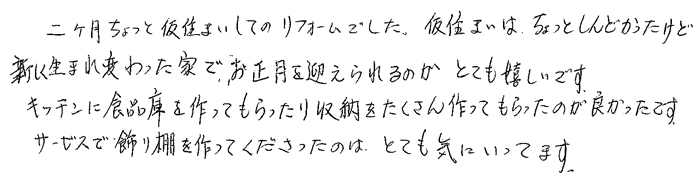 二ヶ月ちょっと仮住まいしてのリフォームでした。仮住まいは、ちょっとしんどかったけど
新しく生まれ変わった家で、お正月を迎えられるのがとても嬉しいです。
キッチンに食品庫を作ってもらったり収納をたくさん作ってもらったのが良かったです
サービスで飾り棚を作ってくださったのは、とても気にいってます。